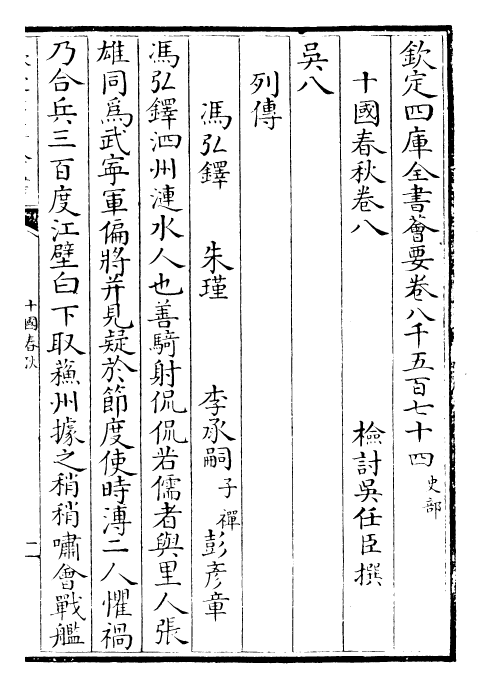 欽定四庫全書薈要卷八千五百七十四 史部
十國春秋卷八 檢討吳任臣撰
吳八
列傳
馮弘鐸 朱瑾 李承嗣 子禪 彭彦章
馮弘鐸泗州漣水人也善騎射侃侃若儒者與里人張
雄同爲武寜軍偏將并見疑於節度使時溥二人懼禍
乃合兵三百度江壁白下取蘓州據之稍稍嘯會戰艦
十國春秋